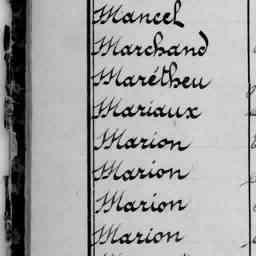 Mancel
Marchand
Marétheu
Mariaux
Marion
Marion
Marion
Marion